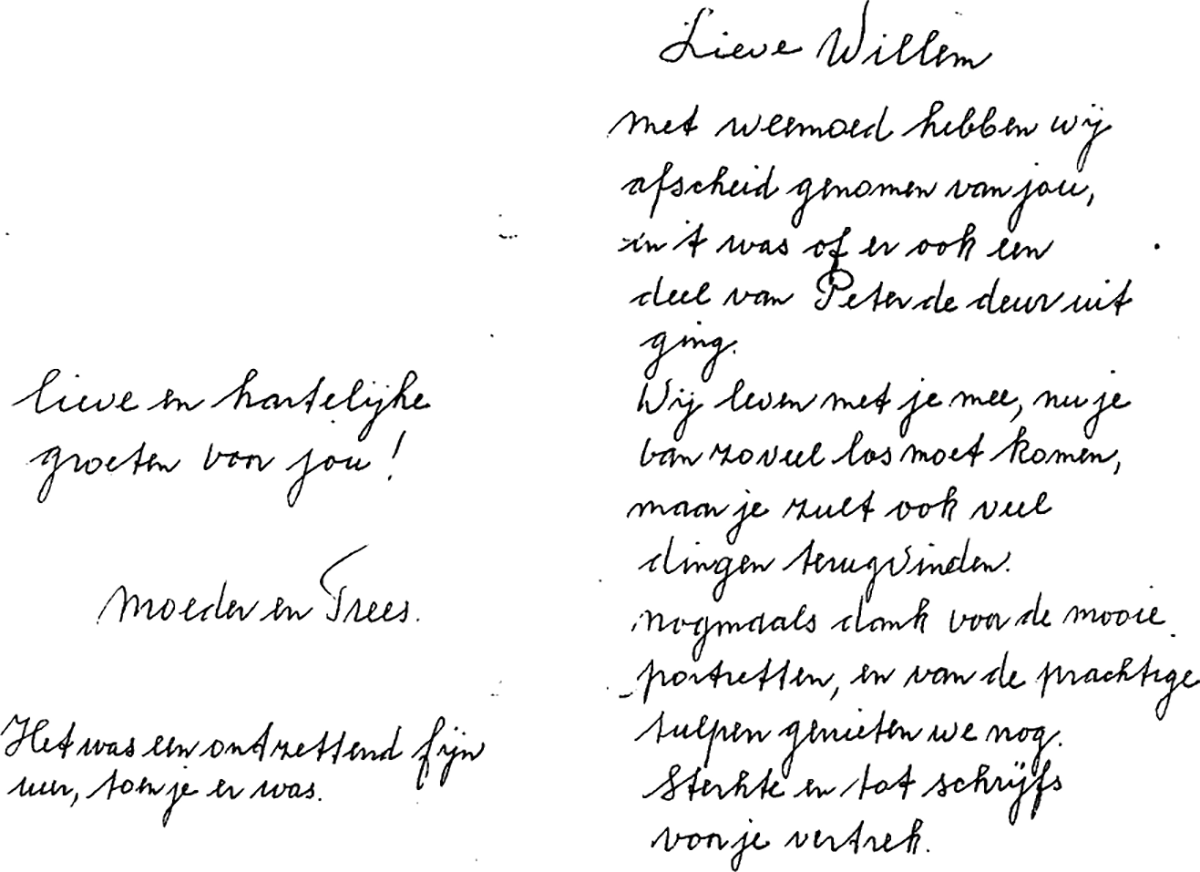 Lieve Willem
met weemoed hebben wij
afscheid genomen van jou,
in 't was of er ook een
deel van Peter de deur uit
ging.
Wij leven met je mee, nu je
van zoveel los moet komen,
maar je zult ook veel
dingen terugvinden.
nogmaals dank voor de mooie
portretten, en van de prachtige
tulpen genieten we nog.
Sterkte en tot schrijfs
voor je vertrek.
lieve en hartelijke
groeten voor jou!
Moeder en Trees.
Het was een ontzettend fijn
uur, toen je er was.